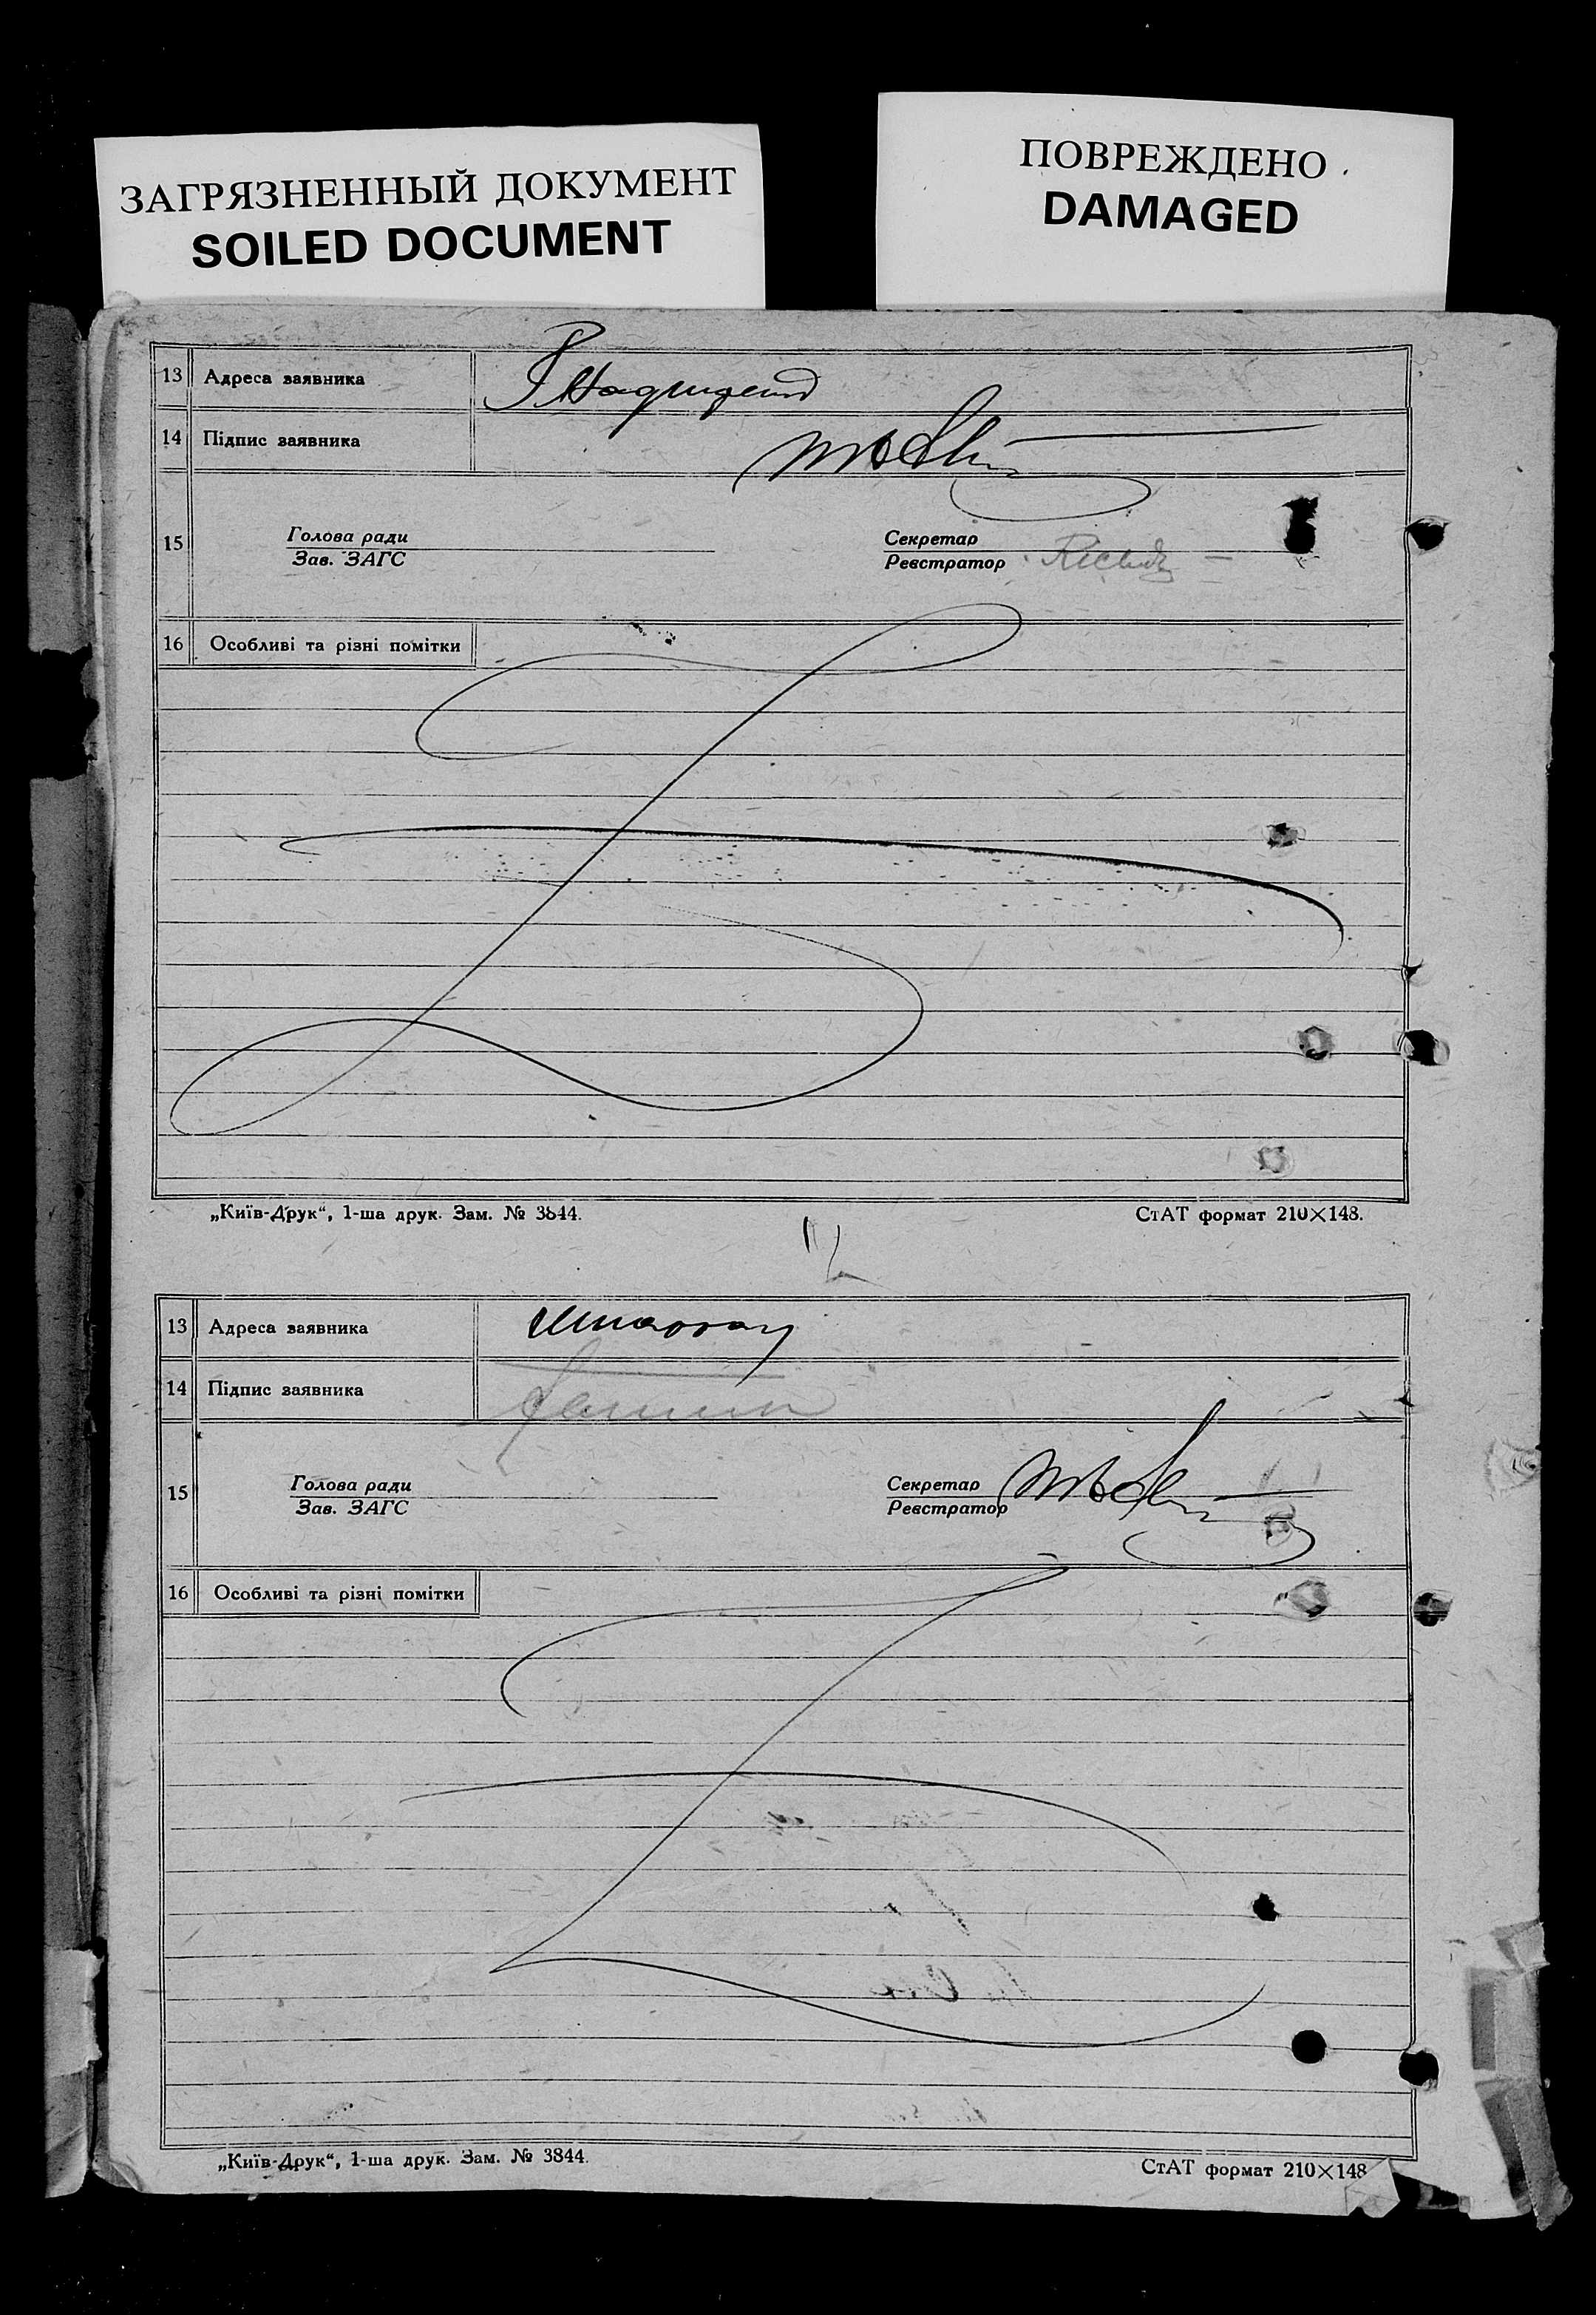 ЗАГРЯЗНЕННЫЙ ДОКУМЕНТ
SOILED DOCUMENT
ПОВРЕЖДЕНО
DAMAGED
13 Адреса заявника
14 Підпис заявника
15 Голова ради
Зав. ЗАГС
Секретар
Реєстратор
16 Особливі та різні помітки
„Київ-Друк“, 1-ша друк. Зам. № 3844.
СтАТ формат 210×148.
13 Адреса заявника
14 Підпис заявника
15 Голова ради
Зав. ЗАГС
Секретар
Реєстратор
16 Особливі та різні помітки
„Київ-Друк“, 1-ша друк. Зам. № 3844.
СтАТ формат 210×148